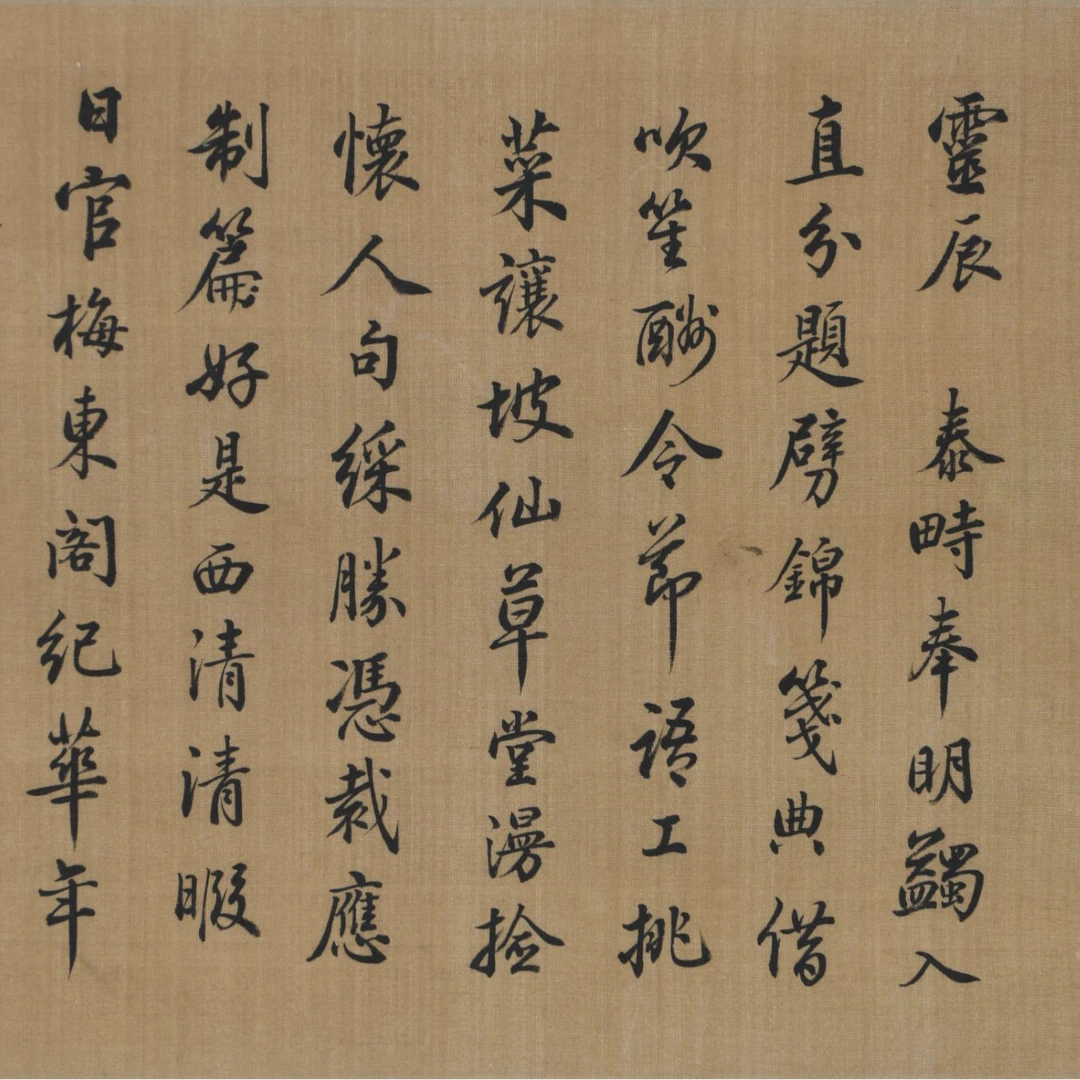 靈辰　泰畤奉明蠲入
直分題劈錦箋典借
吹笙酬令節語工挑
菜讓坡仙草堂漫捡
懷人句綵勝憑裁應
制篇好是西清清暇
日官梅東閣紀華年